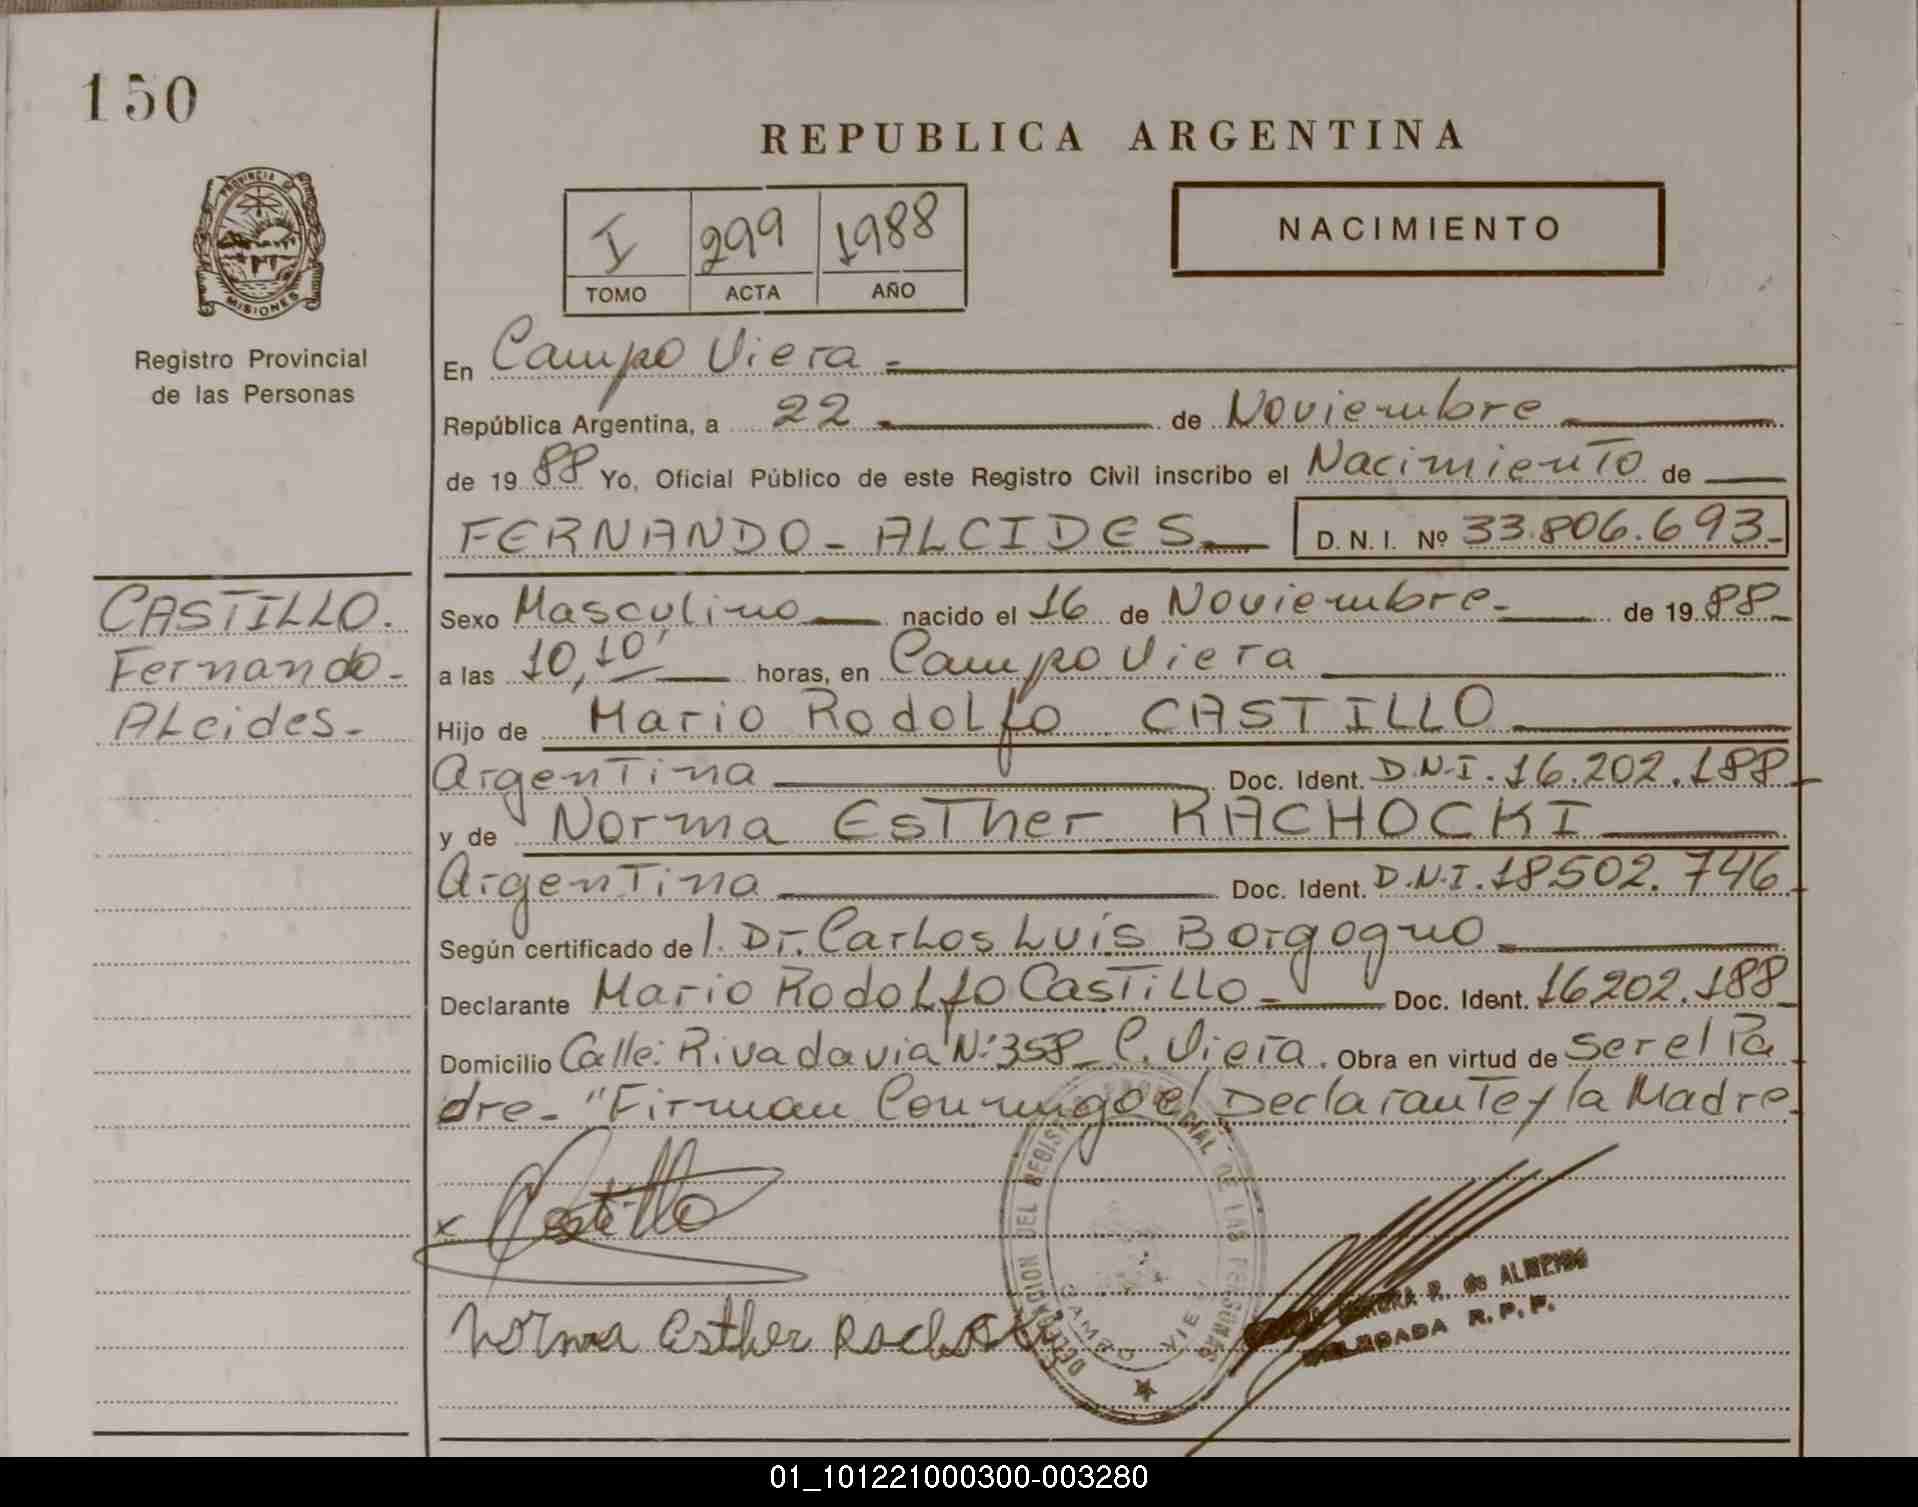 150
REPUBLICA ARGENTINA
PROVINCIA DE
MISIONES
I 299 1988
TOMO ACTA AÑO
NACIMIENTO
Registro Provincial
de las Personas
En Campo Viera
República Argentina, a 22 de Noviembre
de 19 88 Yo, Oficial Público de este Registro Civil inscribo el Nacimiento de
FERNANDO - ALCIDES D. N. I. Nº 33.806.693-
CASTILLO.
Fernando-
ALcides-
Sexo Masculino nacido el 16 de Noviembre- de 19 88-
a las 10,10' horas, en Campo Viera
Hijo de Mario RodoLfo CASTILLO
Argentina Doc. Ident. D.N.I. 16.202.188-
y de Norma Esther RACHOCKI
Argentina Doc. Ident. D.N.I. 18502.746
Según certificado de l. Dr. CarLos Luís Borgogno
Declarante Mario RodoLfo CastiLLo Doc. Ident. 16202.188
Domicilio Calle: Rivadavia Nº358 C. Viera. Obra en virtud de ser el Pa
dre- "Firman Conmigo el Declarante y la Madre.
x Castillo
Norma Esther Rachocki
DELEGACION DEL REGISTRO PROVINCIAL DE LAS PERSONAS
CAMPO VIERA
R. de ALMEYDA
DELEGADA R.P.P.
01_101221000300-003280